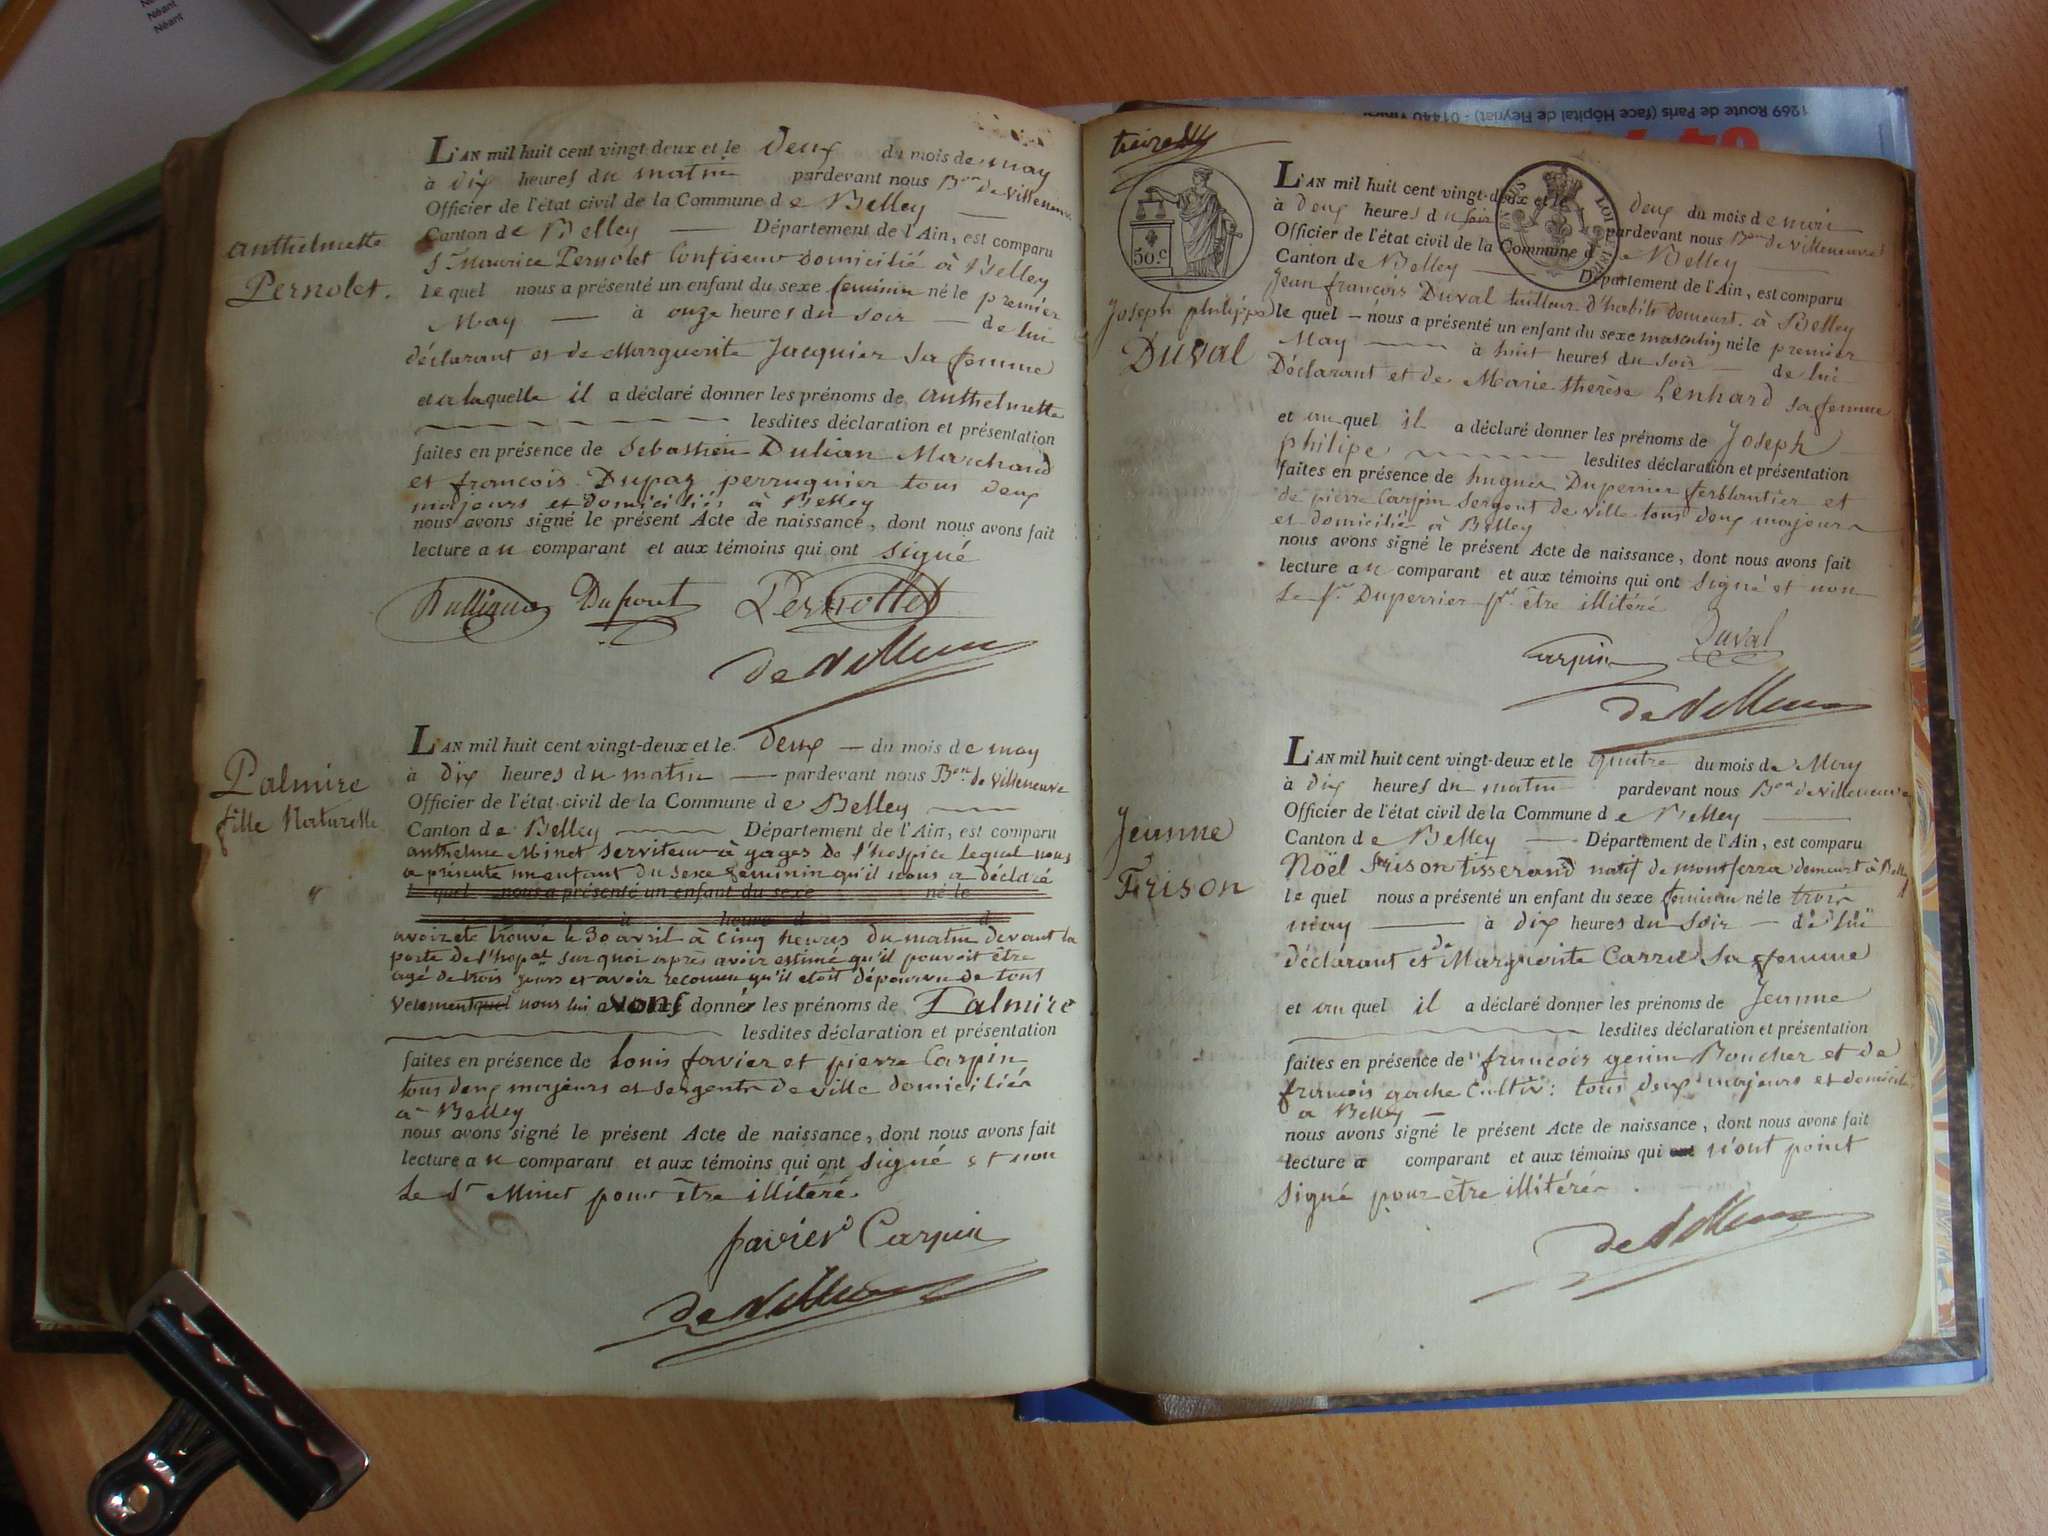 Néant
Néant
1269 Route de Paris (face Hôpital de Fleyriat) - 01440
Anthelmette
Pernolet.
L'AN mil huit cent vingt-deux et le deux du mois de may
à dix heures du matin pardevant nous Bon de Villeneuve
Officier de l'état civil de la Commune de Belley
Canton de Belley Département de l'Ain, est comparu
Sr Maurice Pernolet Confiseur domicilié à Belley
lequel nous a présenté un enfant du sexe feminin né le premier
May à onze heures du soir de lui
déclarant et de Marguerite Jacquier sa femme
et a laquelle il a déclaré donner les prénoms de anthelmette
lesdites déclaration et présentation
faites en présence de Sebastien Dulian Marchand
et francois Dupaz perruquier tous deux
majeurs et domiciliés à Belley
nous avons signé le présent Acte de naissance, dont nous avons fait
lecture au comparant et aux témoins qui ont signé
Pernollet
de Villeneuve
Palmire
fille Naturelle
L'AN mil huit cent vingt-deux et le deux du mois de may
à dix heures du matin pardevant nous Bon de Villeneuve
Officier de l'état civil de la Commune de Belley
Canton de Belley Département de l'Ain, est comparu
anthelme Minet serviteur à gages de l'hospice lequel nous
a présenté un enfant du sexe feminin qu'il nous a déclaré
lequel nous a présenté un enfant du sexe né le
à heure d d
avoir eté trouvé le 30 avril à cinq heures du matin devant la
porte de l'hopal sur quoi apres avoir estimé qu'il pouvoit être
agé de trois jours et avoir reconnu qu'il etoit dépourvu de tout
vetement quel nous lui avons donner les prénoms de Palmire
lesdites déclaration et présentation
faites en présence de Louis favier et pierre Carpin
tous deux majeurs et sergents de ville domiciliés
a Belley
nous avons signé le présent Acte de naissance, dont nous avons fait
lecture au comparant et aux témoins qui ont signé et non
le Sr Minet pour être illitéré
favier Carpin
de Villeneuve
50 c
Joseph philippe
Duval
L'AN mil huit cent vingt-deux et le deux du mois de mai
à deux heures du soir pardevant nous Bon de Villeneuve
Officier de l'état civil de la Commune de Belley
Canton de Belley Département de l'Ain, est comparu
Jean francois Duval tailleur d'habits demeurt. à Belley
lequel nous a présenté un enfant du sexe masculin né le premier
May à huit heures du soir de lui
Déclarant et de Marie therèse Lenhard sa femme
et au quel il a déclaré donner les prénoms de Joseph
philipe lesdites déclaration et présentation
faites en présence de hugues Duperrier ferblantier et
de pierre Carpin sergent de ville tous deux majeurs
et domiciliés à Belley
nous avons signé le présent Acte de naissance, dont nous avons fait
lecture au comparant et aux témoins qui ont signé et non
le Sr Duperrier pr être illitéré
Duval
Carpin
de Villeneuve
Jeanne
Frison
L'AN mil huit cent vingt-deux et le quatre du mois de May
à dix heures du matin pardevant nous Bon de Villeneuve
Officier de l'état civil de la Commune de Belley
Canton de Belley Département de l'Ain, est comparu
Noël frison tisserand natif de montferra demeurt à Belley
le quel nous a présenté un enfant du sexe feminin né le trois
may à dix heures du soir de lui
déclarant et de Marguerite Carrel sa femme
et au quel il a déclaré donner les prénoms de Jeanne
lesdites déclaration et présentation
faites en présence de francois genin Boucher et de
francois gache Cultiv: tous deux majeurs et domicil
a Belley
nous avons signé le présent Acte de naissance, dont nous avons fait
lecture a comparant et aux témoins qui ont n'ont point
signé pour être illitérés
de Villeneuve